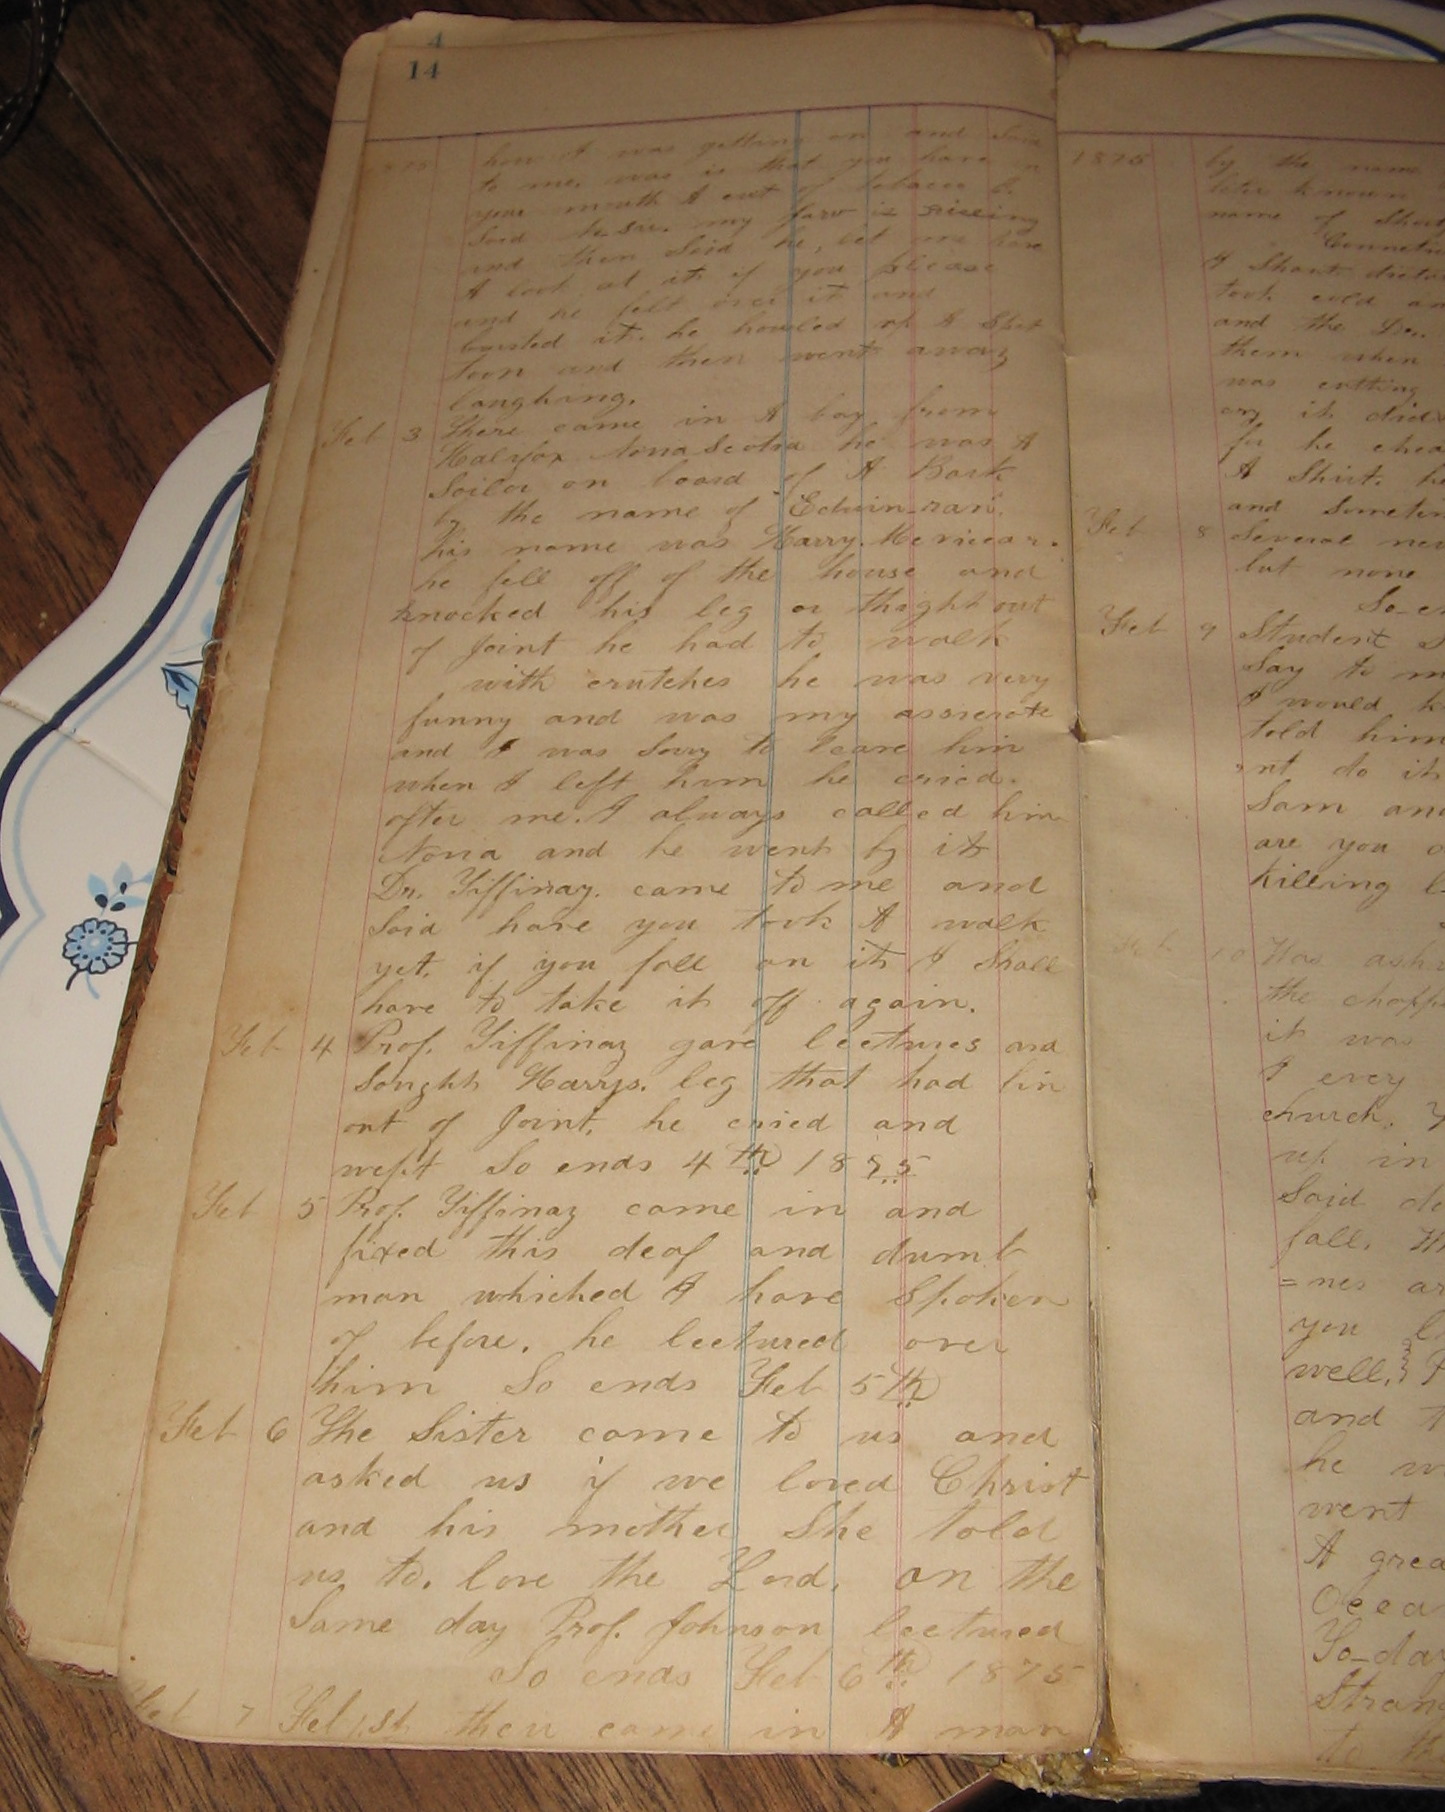 4
14
how it was getting on and said
to me, was is that you have in
your mouth A cut of tobacco
Said he sir. my Jaw is riseing
and then Said he, let me have
A look at it if you please
and he felt over it and
bursted it. he howled up A
and then went away
laughing.
Feb 3 There came in A boy from
Halifax Nova Scotia he was A
Sailor on board of A Bark
by the name of Edwin
his name was Harry.
he fell off of the house and
knocked his leg or thigh out
of Joint he had to walk
with crutches he was very
funny and was my assosrate
and I was Sorry to leave him
when I left him he cried.
after me. I always called him
Nova and he went by it
Dr. Tiffinay. came to me and
Said have you took A walk
yet, if you fall on it I Shall
have to take it off again.
Feb 4 Prof. Tiffinay gave lectures and
Sought Harrys. leg that had bin
out of Joint, he cried and
wept So ends 4th 1875
Feb 5 Prof. Tiffinay came in and
fixed this deaf and dumb
man whiched I have Spoken
of before. he lectured over
him So ends Feb 5th
Feb 6 The Sister came to us and
asked us if we loved Christ
and his mother She told
us to. love the Lord. on the
Same day Prof. Johnson lectured
So ends Feb 6th 1875
Feb 7 Feb 1st there came in A man
1875 by the name
later known
name of
A Short
took cold an
and the Dr.
them when
was cutting
cry it did
for he
A Shirt. he
and Someti
Feb 8 Several new
but none
So en
Feb 9 Student S
Say to m
I would k
told him
nt do it
Sam and
are you
killing
Feb 10 Was
the
it was
I every
church.
up in
Said
fall.
=nes ar
you l
well,
and t
he w
went
A grea
Ocea
To-day
Stran
to th